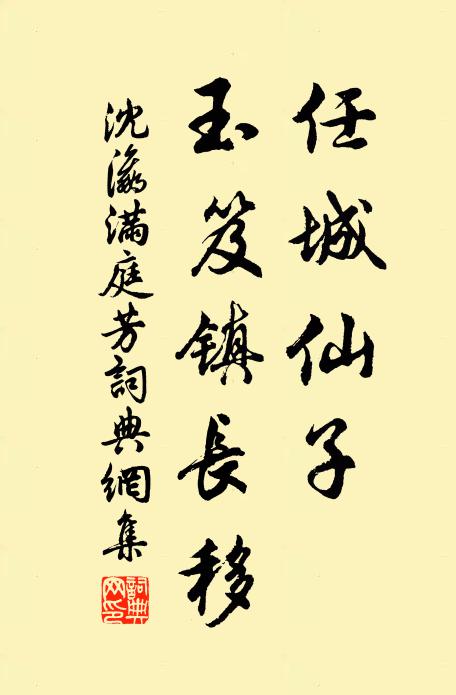 任城仙子
玉笈鎮長移
沈瀛滿庭芳詞典網集
詞典网印